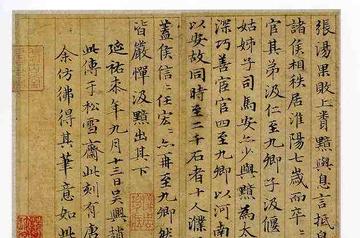 張湯果敗上聞黯與息言抵息
諸侯相秩居淮陽七歲而卒〻
官其弟汲仁至九卿子汲偃
姑姊子司馬安亦少與黯為太
深巧善宦官四至九卿以河南
以安故同時至二千石者十人濮
蓋侯信〻任宏〻亦再至九卿然
皆嚴憚汲黯出其下
延祐七年九月十三日吳興趙
此傳于松雪齋此刻有唐
余仿佛得其筆意如此